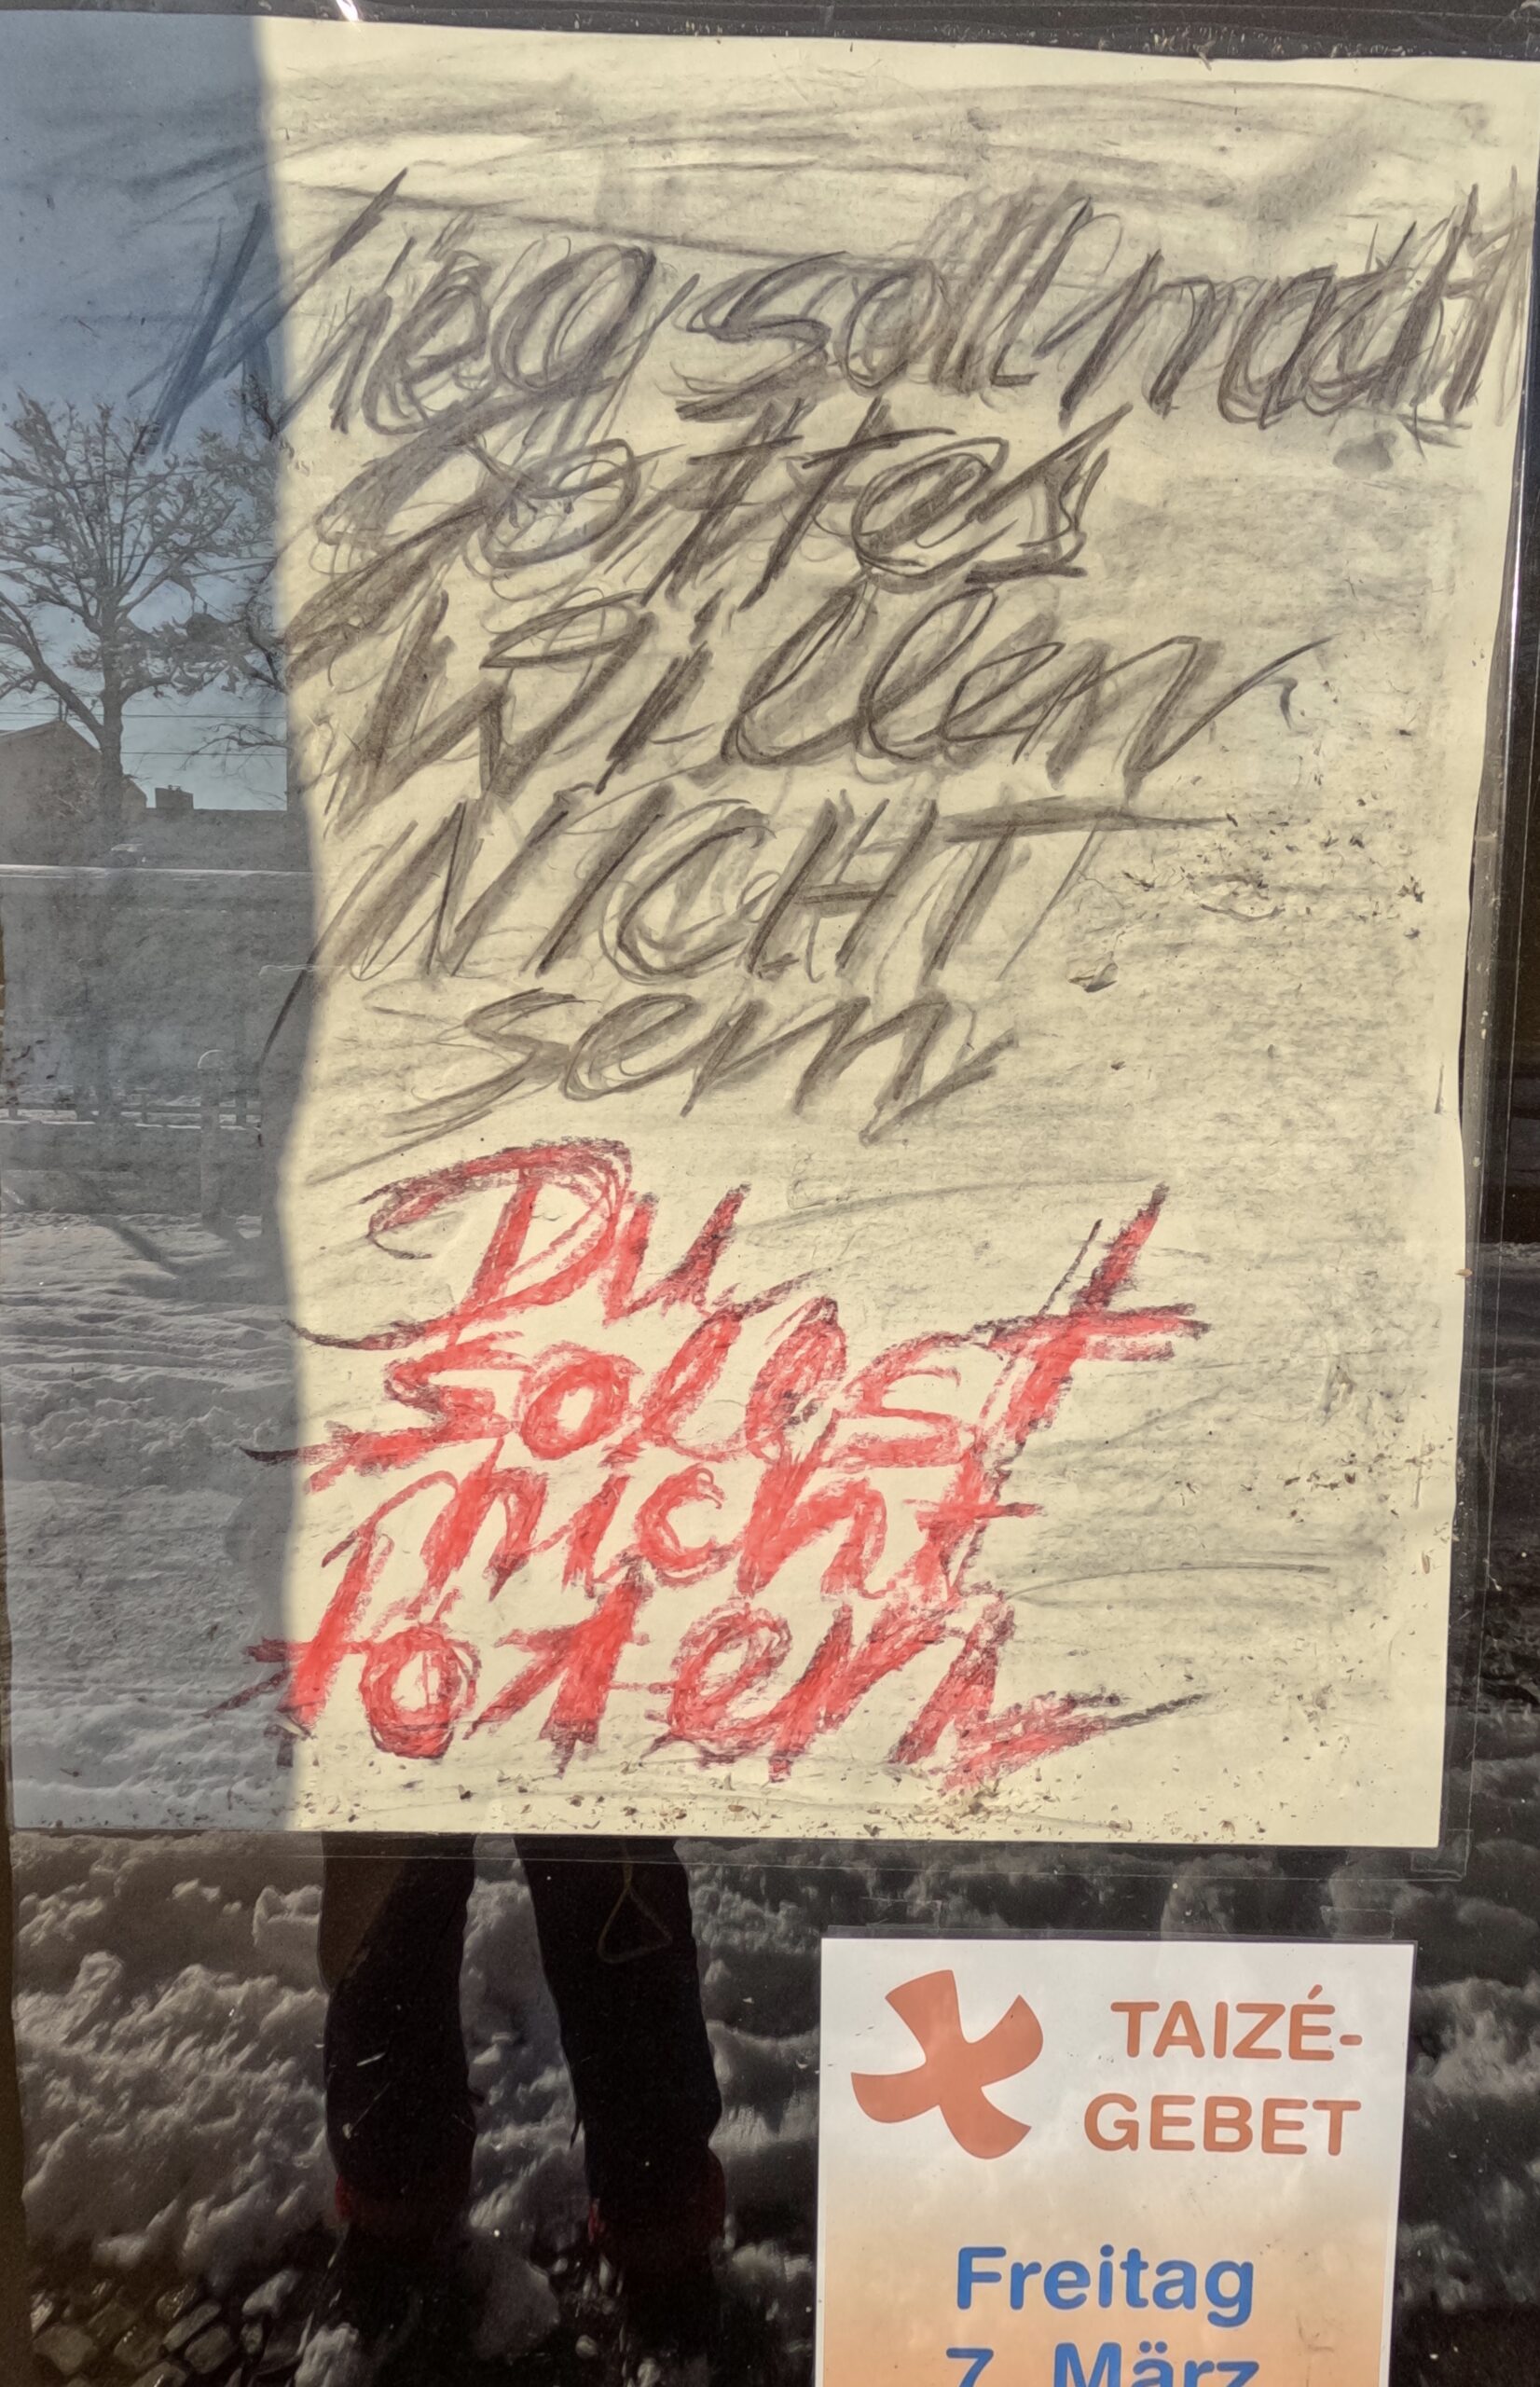 Krieg soll nach
Gottes
Willen
NICHT
sein
Du
sollst
nicht
töten
TAIZÉ-
GEBET
Freitag
7. März